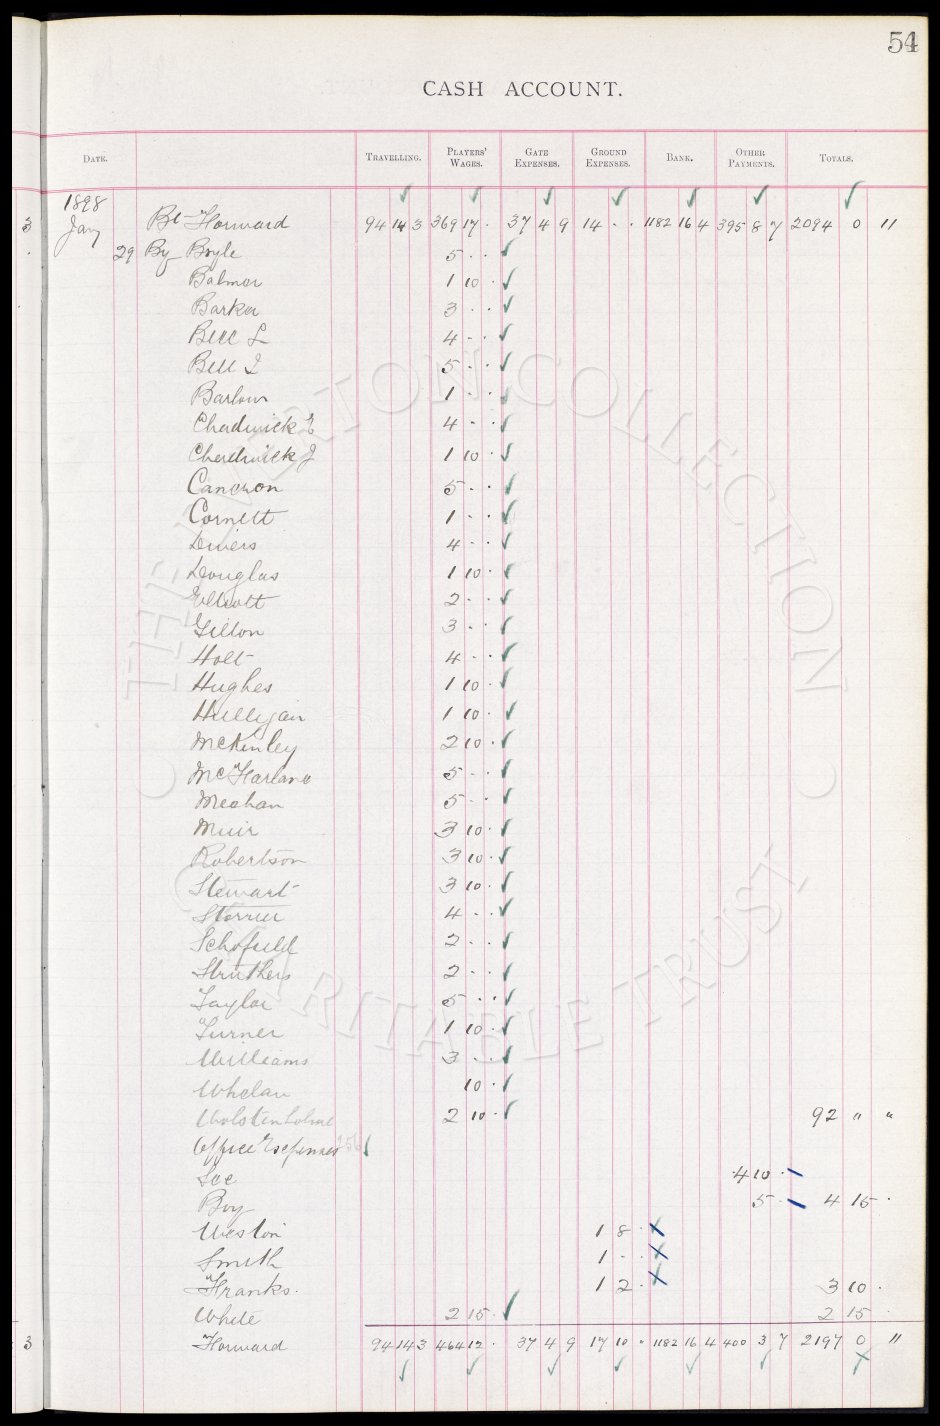 54
CASH ACCOUNT.
DATE. TRAVELLING. PLAYERS' WAGES. GATE EXPENSES. GROUND EXPENSES. BANK. OTHER PAYMENTS. TOTALS.
1898
3 Jany Bt Forward 94 14 3 369 17 · 37 4 9 14 · · 1182 16 4 395 8 7 2094 0 11
29 By Boyle 5 · ·
Balmer 1 10 ·
Barker 3 · ·
Bell L 4 · ·
Bell J 5 · ·
Barlow 1 · ·
Chadwick E 4 · ·
Chadwick J 1 10 ·
Cameron 5 · ·
Cornett 1 · ·
Divers 4 · ·
Douglas 1 10 ·
Elliott 2 · ·
Gillon 3 · ·
Holt 4 · ·
Hughes 1 10 ·
Hulligan 1 10 ·
McKinley 2 10 ·
McFarlane 5 · ·
Meehan 5 · ·
Muir 3 10 ·
Robertson 3 10 ·
Stewart 3 10 ·
Storrier 4 · ·
Schofield 2 · ·
Struthers 2 · ·
Taylor 5 · ·
Turner 1 10 ·
Williams 3 · ·
Whelan 10 ·
Wolstenholme 2 10 · 92 " "
Office Expenses 256
Lee 4 10 ·
Boy 5 · 4 15 ·
Weston 1 8 ·
Smith 1 · ·
Franks. 1 2 · 3 10 ·
White 2 15 · 2 15 ·
3 Forward 94 14 3 464 12 · 37 4 9 17 10 " 1182 16 4 400 3 7 2197 0 11
© THE EVERTON COLLECTION CHARITABLE TRUST